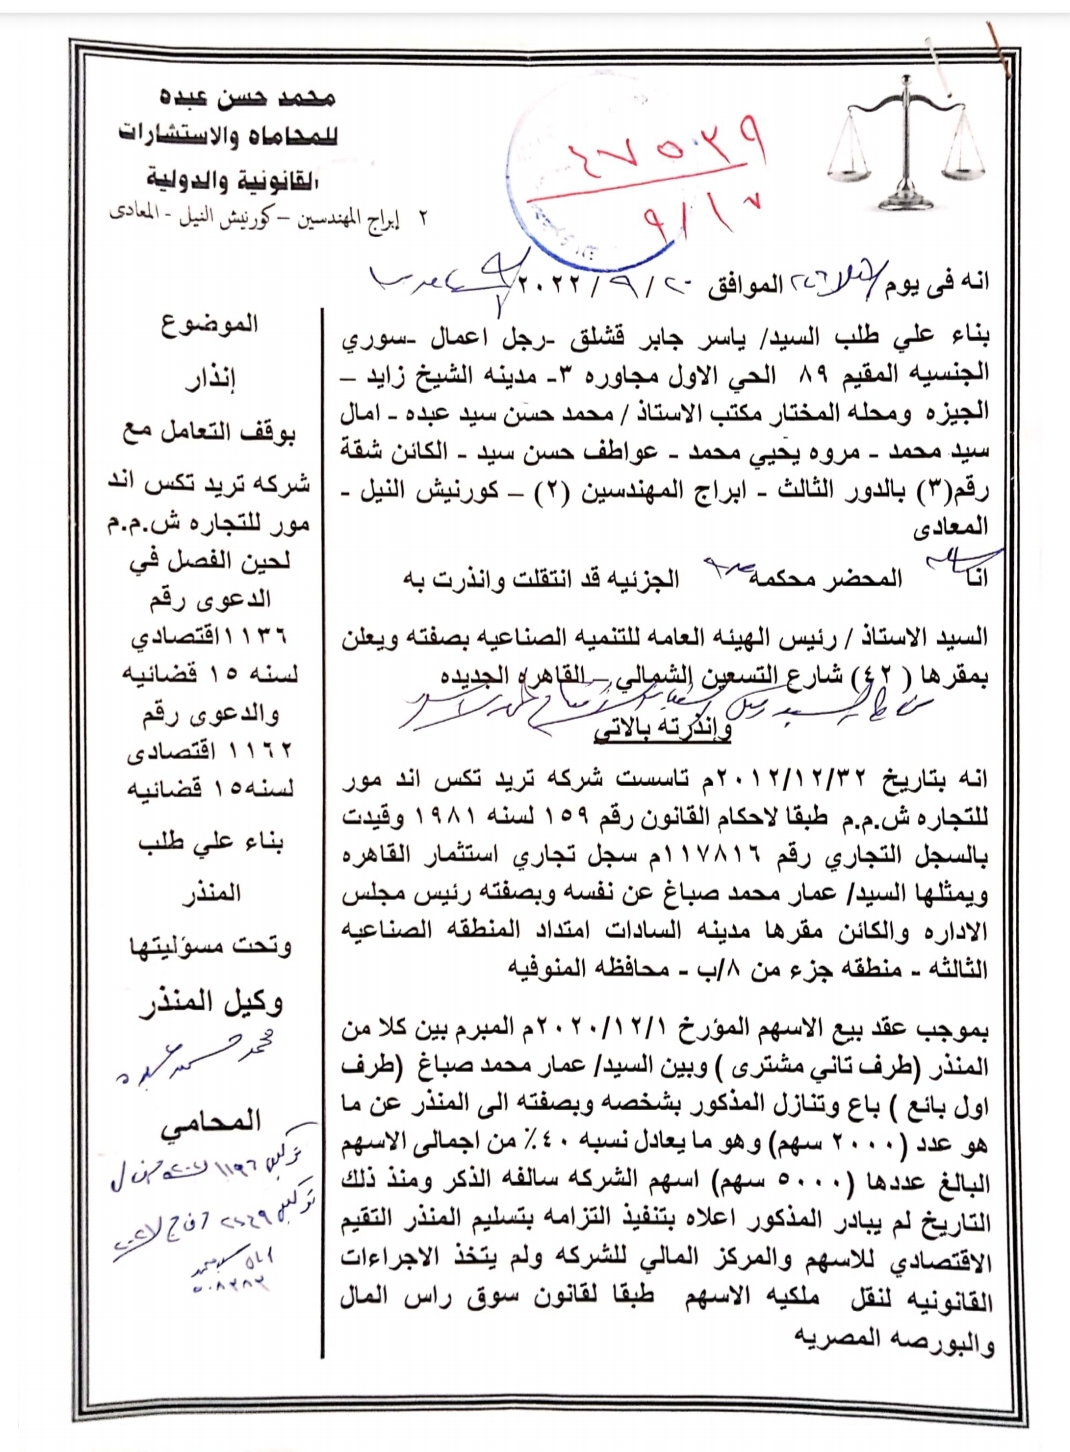 محمد حسن عبده
للمحاماه والاستشارات
القانونية والدولية
٢ ابراج المهندسين – كورنيش النيل - المعادى
٤٧٥٢٩
٩/١٧
انه فى يوم الموافق ٢٠/٩/٢٠٢٢
بناء علي طلب السيد/ ياسر جابر قشلق -رجل اعمال -سوري
الجنسيه المقيم ٨٩ الحي الاول مجاوره ٣- مدينه الشيخ زايد –
الجيزه ومحله المختار مكتب الاستاذ / محمد حسن سيد عبده - امال
سيد محمد - مروه يحيي محمد - عواطف حسن سيد - الكائن شقة
رقم(٣) بالدور الثالث - ابراج المهندسين (٢) – كورنيش النيل -
المعادى
انا المحضر محكمه الجزئيه قد انتقلت وانذرت به
السيد الاستاذ / رئيس الهيئه العامه للتنميه الصناعيه بصفته ويعلن
بمقرها ( ٤٢) شارع التسعين الشمالي – القاهره الجديده
وإنذرته بالاتي
انه بتاريخ ٢٠١٢/١٢/٣٢م تاسست شركه تريد تكس اند مور
للتجاره ش.م.م طبقا لاحكام القانون رقم ١٥٩ لسنه ١٩٨١ وقيدت
بالسجل التجاري رقم ١١٧٨١٦م سجل تجاري استثمار القاهره
ويمثلها السيد/ عمار محمد صباغ عن نفسه وبصفته رئيس مجلس
الاداره والكائن مقرها مدينه السادات امتداد المنطقه الصناعيه
الثالثه - منطقه جزء من ٨/ب - محافظه المنوفيه
بموجب عقد بيع الاسهم المؤرخ ٢٠٢٠/١٢/١م المبرم بين كلا من
المنذر (طرف تاني مشترى ) وبين السيد/ عمار محمد صباغ (طرف
اول بائع ) باع وتنازل المذكور بشخصه وبصفته الى المنذر عن ما
هو عدد (٢٠٠٠ سهم) وهو ما يعادل نسبه ٤٠٪ من اجمالى الاسهم
البالغ عددها (٥٠٠٠ سهم) اسهم الشركه سالفه الذكر ومنذ ذلك
التاريخ لم يبادر المذكور اعلاه بتنفيذ التزامه بتسليم المنذر التقيم
الاقتصادي للاسهم والمركز المالي للشركه ولم يتخذ الاجراءات
القانونيه لنقل ملكيه الاسهم طبقا لقانون سوق راس المال
والبورصه المصريه
الموضوع
إنذار
بوقف التعامل مع
شركه تريد تكس اند
مور للتجاره ش.م.م
لحين الفصل في
الدعوى رقم
١١٣٦ اقتصادي
لسنه ١٥ قضائيه
والدعوى رقم
١١٦٢ اقتصادى
لسنه١٥ قضائيه
بناء علي طلب
المنذر
وتحت مسؤليتها
وكيل المنذر
محمد حسن عبده
المحامي